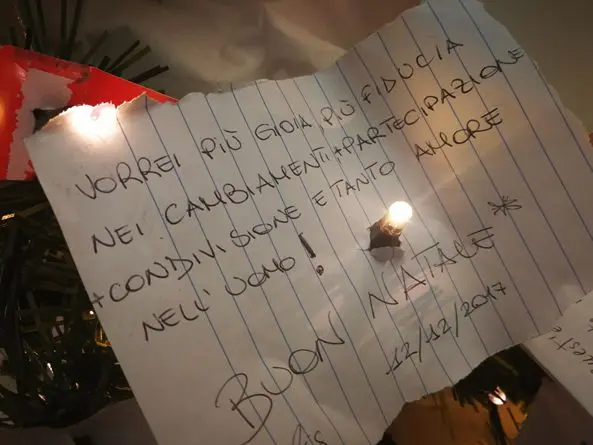 VORREI PIÙ GIOIA PIÙ FIDUCIA
NEI CAMBIAMENTI + PARTECIPAZIONE
+ CONDIVISIONE E TANTO AMORE
NELL' UOMO!
BUON NATALE *
12/12/2017